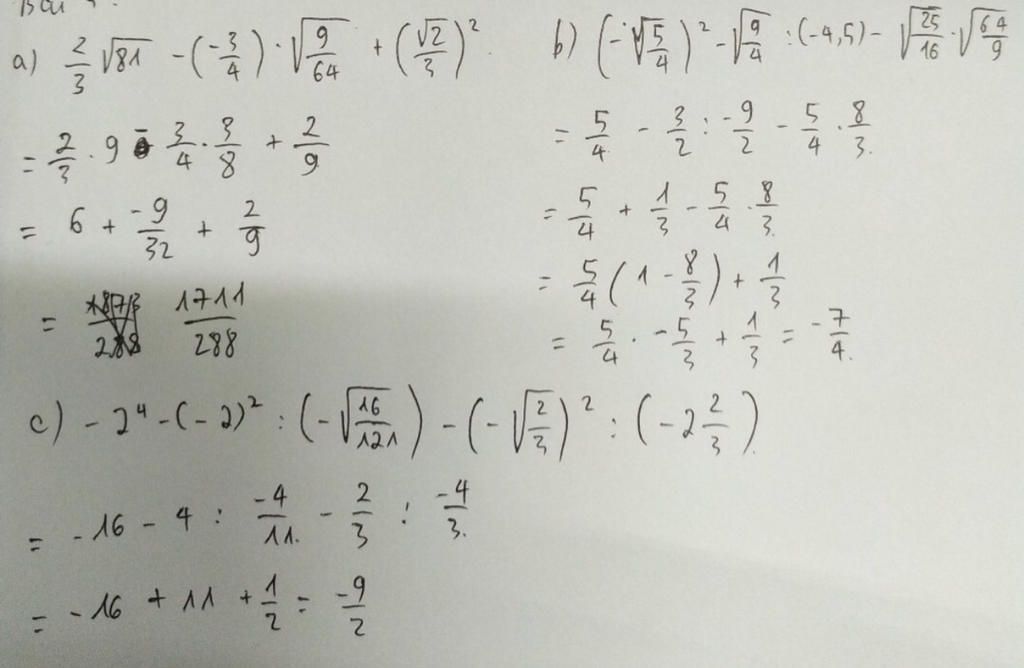 a) 2/3 √81 - (-3/4) · √(9/64) + (√2/3)²
= 2/3 · 9 - 3/4 · 3/8 + 2/9
= 6 + -9/32 + 2/9
= 1711/288
b) (-√(5/4))² - √(9/4) : (-4,5) - √(25/16) · √(64/9)
= 5/4 - 3/2 : -9/2 - 5/4 · 8/3.
= 5/4 + 1/3 - 5/4 · 8/3.
= 5/4 (1 - 8/3) + 1/3
= 5/4 · -5/3 + 1/3 = -7/4.
c) -2⁴ - (-2)² : (-√(16/121)) - (-√(2/3))² : (-2 2/3)
= -16 - 4 : -4/11. - 2/3 : -4/3.
= -16 + 11 + 1/2 = -9/2